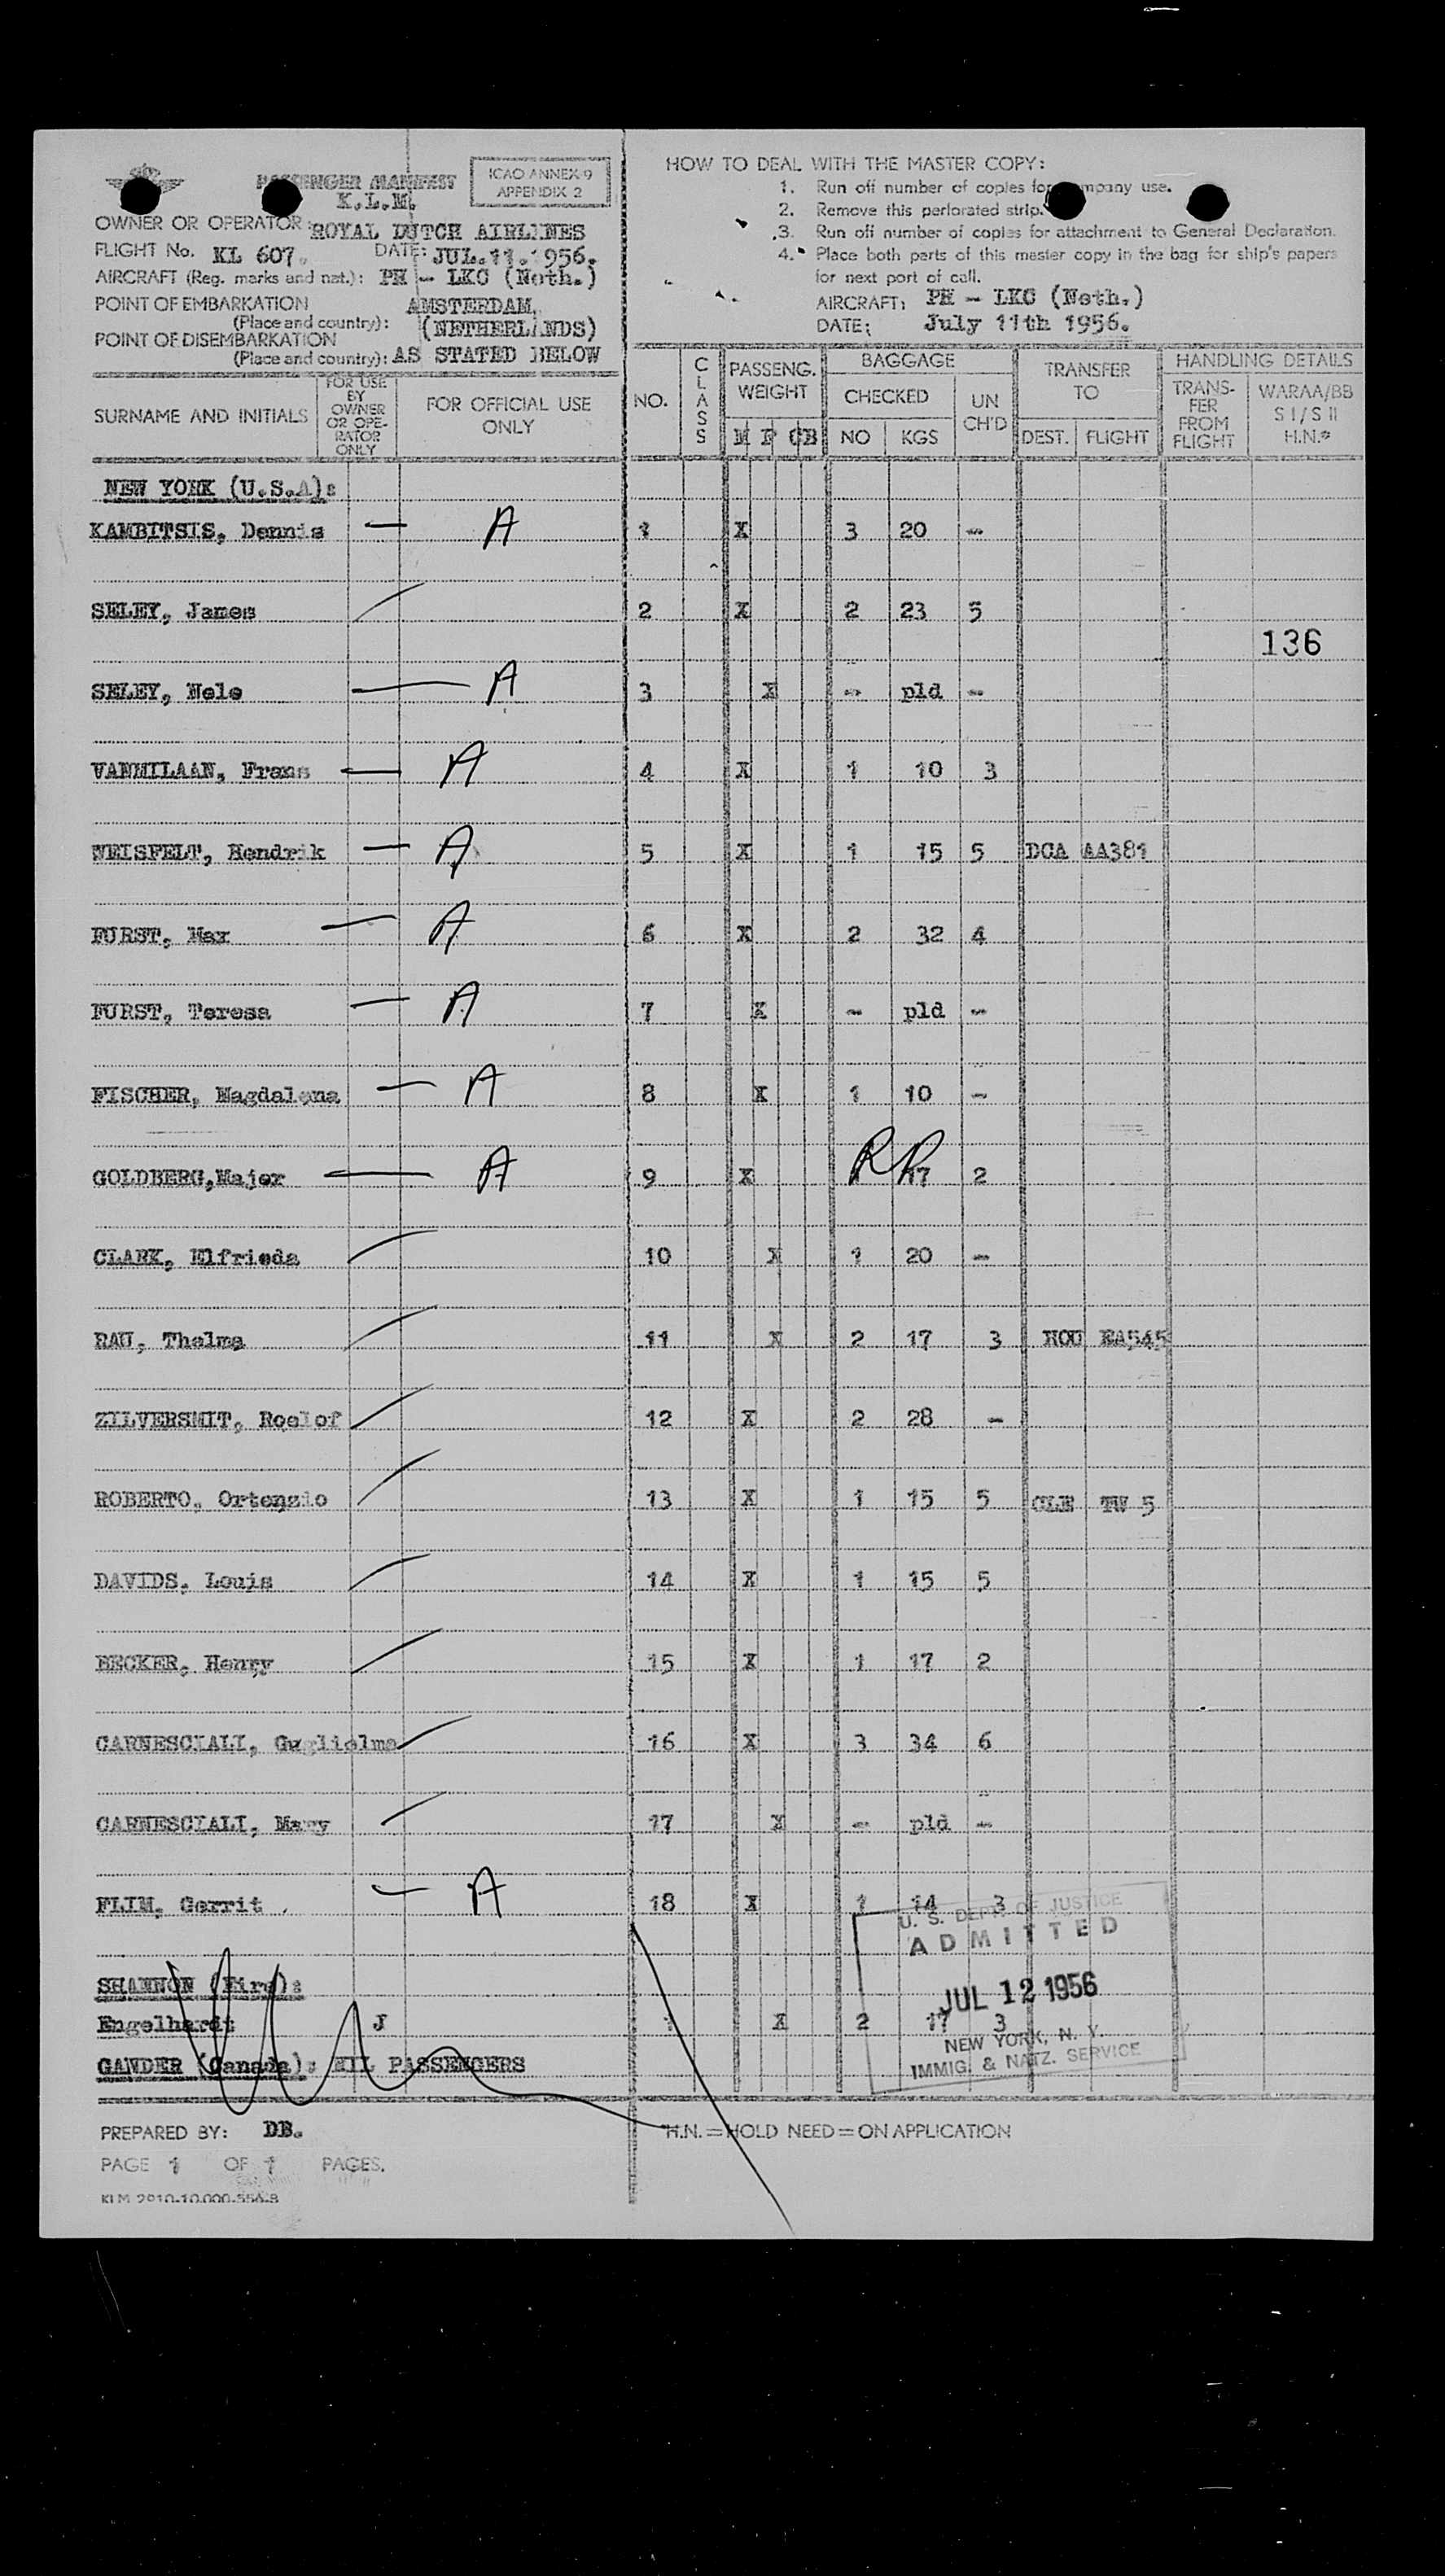 PASSENGER MANIFEST
ICAO ANNEX 9
APPENDIX 2
K.L.M.
OWNER OR OPERATOR: ROYAL DUTCH AIRLINES
FLIGHT No. KL 607. DATE: JUL.11.1956.
AIRCRAFT (Reg. marks and nat.): PH - LKG (Neth.)
POINT OF EMBARKATION AMSTERDAM,
(Place and country): (NETHERLANDS)
POINT OF DISEMBARKATION
(Place and country): AS STATED BELOW
HOW TO DEAL WITH THE MASTER COPY:
1. Run off number of copies for company use.
2. Remove this perforated strip.
3. Run off number of copies for attachment to General Declaration.
4. Place both parts of this master copy in the bag for ship's papers
for next port of call.
AIRCRAFT: PH - LKG (Neth.)
DATE: July 11th 1956.
SURNAME AND INITIALS
FOR USE BY OWNER OR OPE-RATOR ONLY
FOR OFFICIAL USE ONLY
NO.
CLASS
PASSENG. WEIGHT
M F C B
BAGGAGE
CHECKED
NO KGS
UN CH'D
TRANSFER TO
DEST. FLIGHT
HANDLING DETAILS
TRANS-FER FROM FLIGHT
WARAA/BB S I / S II H.N.*
NEW YORK (U.S.A):
KAMBITSIS, Dennis — A 1 X 3 20 -
SELEY, James 2 X 2 23 5
136
SELEY, Nele — A 3 X - pld -
VANMILAAN, Frans — A 4 X 1 10 3
WEISFELT, Hendrik — A 5 X 1 15 5 DCA AA381
FURST, Max — A 6 X 2 32 4
FURST, Teresa — A 7 X - pld -
FISCHER, Magdalena — A 8 X 1 10 -
GOLDBERG,Major — A 9 X RR 17 2
CLARK, Elfrieda 10 X 1 20 -
RAU, Thelma 11 X 2 17 3 HOU EA545
ZILVERSMIT, Roelof 12 X 2 28 -
ROBERTO, Ortenzio 13 X 1 15 5 CLE TW 5
DAVIDS, Louis 14 X 1 15 5
BECKER, Henry 15 X 1 17 2
CARNESCIALI, Guglielmo 16 X 3 34 6
CARNESCIALI, Mary 17 X - pld -
FLIM, Gerrit — A 18 X 1 14 3
U. S. DEPT. OF JUSTICE
ADMITTED
JUL 12 1956
NEW YORK, N. Y.
IMMIG. & NATZ. SERVICE
SHANNON (Eire):
Engelhardt J 1 X 2 17 3
GANDER (Canada): NIL PASSENGERS
PREPARED BY: DB.
*H.N. = HOLD NEED = ON APPLICATION
PAGE 1 OF 1 PAGES.